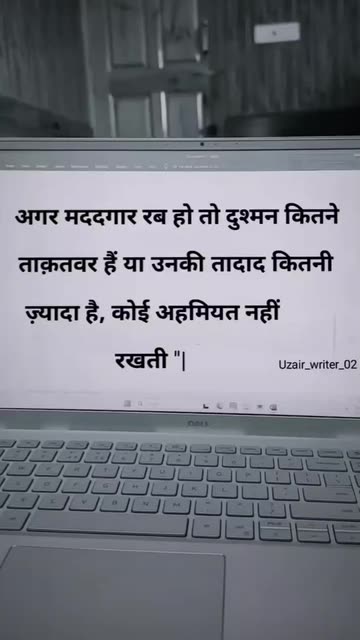 अगर मददगार रब हो तो दुश्मन कितने
ताक़तवर हैं या उनकी तादाद कितनी
ज़्यादा है, कोई अहमियत नहीं
रखती "|
Uzair_writer_02
DELL